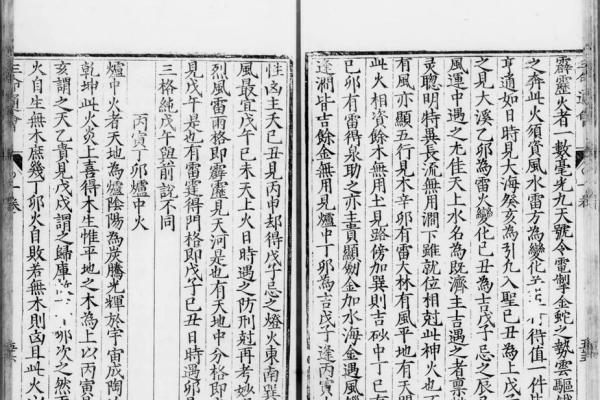 霹靂火者一數毫光九天號令電掣金蛇之勢雲驅鐵
之奔此火須資風水雷方為變化得值一件
亨通如日時見大海癸亥為引九入聖己丑為上戊子
之見大溪乙卯為雷火變化己丑為吉戊子忌之辰巳
風運中遇之尤佳天上水名為既濟主吉遇之者稟
靈聰明特異長流無用澗下雖就位相尅此神火也不
有風亦顯五行見木辛卯有雷大林有風平地有天門
此火相資餘木無用土見路傍加巽則吉砂中丁巳有
己卯有雷得泉助之亦主貴顯劒金加水海金遇風蠟
逢澗皆吉餘金無用見爐中丁卯為吉戊子逢丙寅
性凶主夭己丑見丙申却得戊子忌之燈火東南巽
風最宜戊午己未天上火日時遇之防刑尅再考妙
烈風雷雨格即霹靂見天河是也有天地中分格即
見戊午是也有雷霆得門格即戊子己丑日時遇卯
三格純戊午與前說不同
丙寅丁卯爐中火
爐中火者天地為爐陰陽為炭騰光輝於宇宙成陶
乾坤此火炎上喜得木生惟平地之木為上以丙寅
亥謂之天乙貴見戊戌謂之歸庫卯次之然
火自生無木庶幾丁卯火自敗若無木則凶且此火
三命通會 一卷